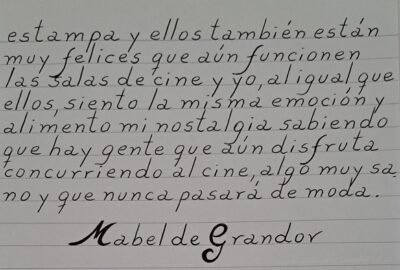 estampa y ellos también están
muy felices que aún funcionen
las salas de cine y yo, al igual que
ellos, siento la misma emoción y
alimento mi nostalgia sabiendo
que hay gente que aún disfruta
concurriendo al cine, algo muy sa_
no y que nunca pasará de moda.
Mabel de Grandor